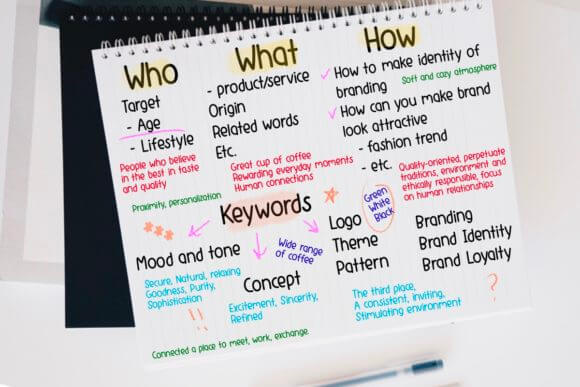 Who
Target
- Age
- Lifestyle
People who believe
in the best in taste
and quality
Proximity, personalization
What
- product/service
Origin
Related words
Etc.
Great cup of coffee
Rewarding everyday moments
Human connections
How
How to make identity of
branding
Soft and cozy atmosphere
How can you make brand
look attractive
- fashion trend
- etc.
Quality-oriented, perpetuate
traditions, environment and
ethically responsible, focus
on human relationships
Keywords
Mood and tone
Secure, Natural, relaxing
Goodness, Purity,
Sophistication
!!
Wide range
of coffee
Concept
Excitement, Sincerity,
Refined
Logo
Theme
Pattern
Green
White
Black
The third place,
A consistent, inviting,
Stimulating environment
Branding
Brand Identity
Brand Loyalty
?
Connected a place to meet, work, exchange.